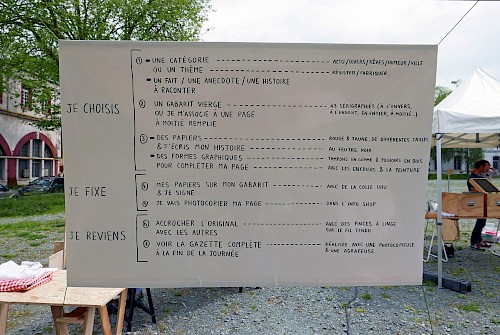 JE CHOISIS
① = UNE CATÉGORIE ACTU/DIVERS/RÊVES/HUMOUR/VILLE
OU UN THÈME RÉSISTER/FABRIQUER
= UN FAIT / UNE ANECDOTE / UNE HISTOIRE
À RACONTER
② UN GABARIT VIERGE A3 SÉRIGRAPHIÉS (À L'ENVERS,
OU JE M'ASSOCIE À UNE PAGE À L'ENDROIT, EN ENTIER, À MOITIÉ..)
À MOITIÉ REMPLIE
③ = DES PAPIERS ROUGE & JAUNE, DE DIFFÉRENTES TAILLES
& J'ÉCRIS MON HISTOIRE AU FEUTRE NOIR
= DES FORMES GRAPHIQUES TAMPONS EN GOMME & POCHOIRS EN BOIS
POUR COMPLÉTER MA PAGE AVEC LES ENCRIERS & LA PEINTURE
JE FIXE
④ MES PAPIERS SUR MON GABARIT AVEC DE LA COLLE UHU
& JE SIGNE
⑤ JE VAIS PHOTOCOPIER MA PAGE DANS L'INFO SHOP
JE REVIENS
⑥ ACCROCHER L'ORIGINAL AVEC DES PINCES À LINGE
AVEC LES AUTRES SUR LE FIL TENDU
⑦ VOIR LA GAZETTE COMPLÈTE RÉALISÉE AVEC UNE PHOTOCOPIEUSE
À LA FIN DE LA JOURNÉE & UNE AGRAFEUSE